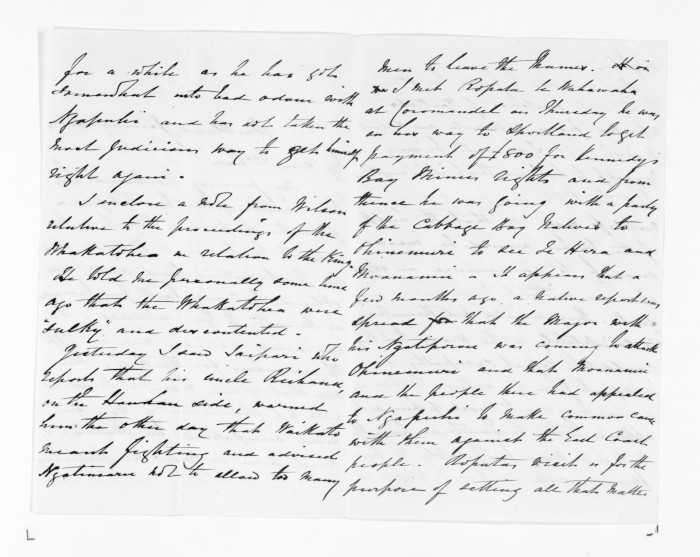 for a while as he has got
somewhat into bad odour with
Ngapuhi and has not taken the
most judicious way to get himself
right again.
I inclose a note from Wilson
relative to the proceedings of the
Whakatohea in relation to the King.
He told me personally some time
ago that the Whakatohea were
"sulky" and discontented.
Yesterday I saw Taipari who
reports that his uncle Riwhana,
on the Hauhau side, warned
him the other day that Waikato
meant fighting and advised
Ngatimaru not to allow too many
men to leave the Thames.
I met Ropata te Wahawaha
at Coromandel on Thursday he was
on his way to Shortland to get
payment of £800 for Kennedy's
Bay Miners rights and from
thence he was going with a party
of the Cabbage Bay Natives to
Ohinemuri to see Te Hira and
Moananui - It appears that a
few months ago, a native report was
spread that the Major with
his Ngatiporou was coming to attack
Ohinemuri and that Moananui
and the people there had appealed
to Ngapuhi to make common cause
with them against the East Coast
people. Ropatas visit is for the
purpose of setting all that matter